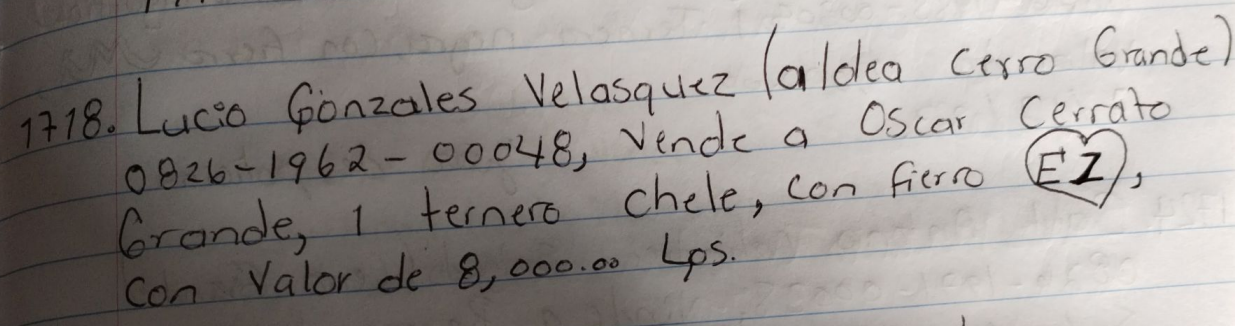 1718. Lucio Gonzales Velasquez (aldea Cerro Grande)
0826-1962-00048, Vende a Oscar Cerrato
Grande, 1 ternero chele, con fierro EZ,
Con Valor de 8,000.00 Lps.